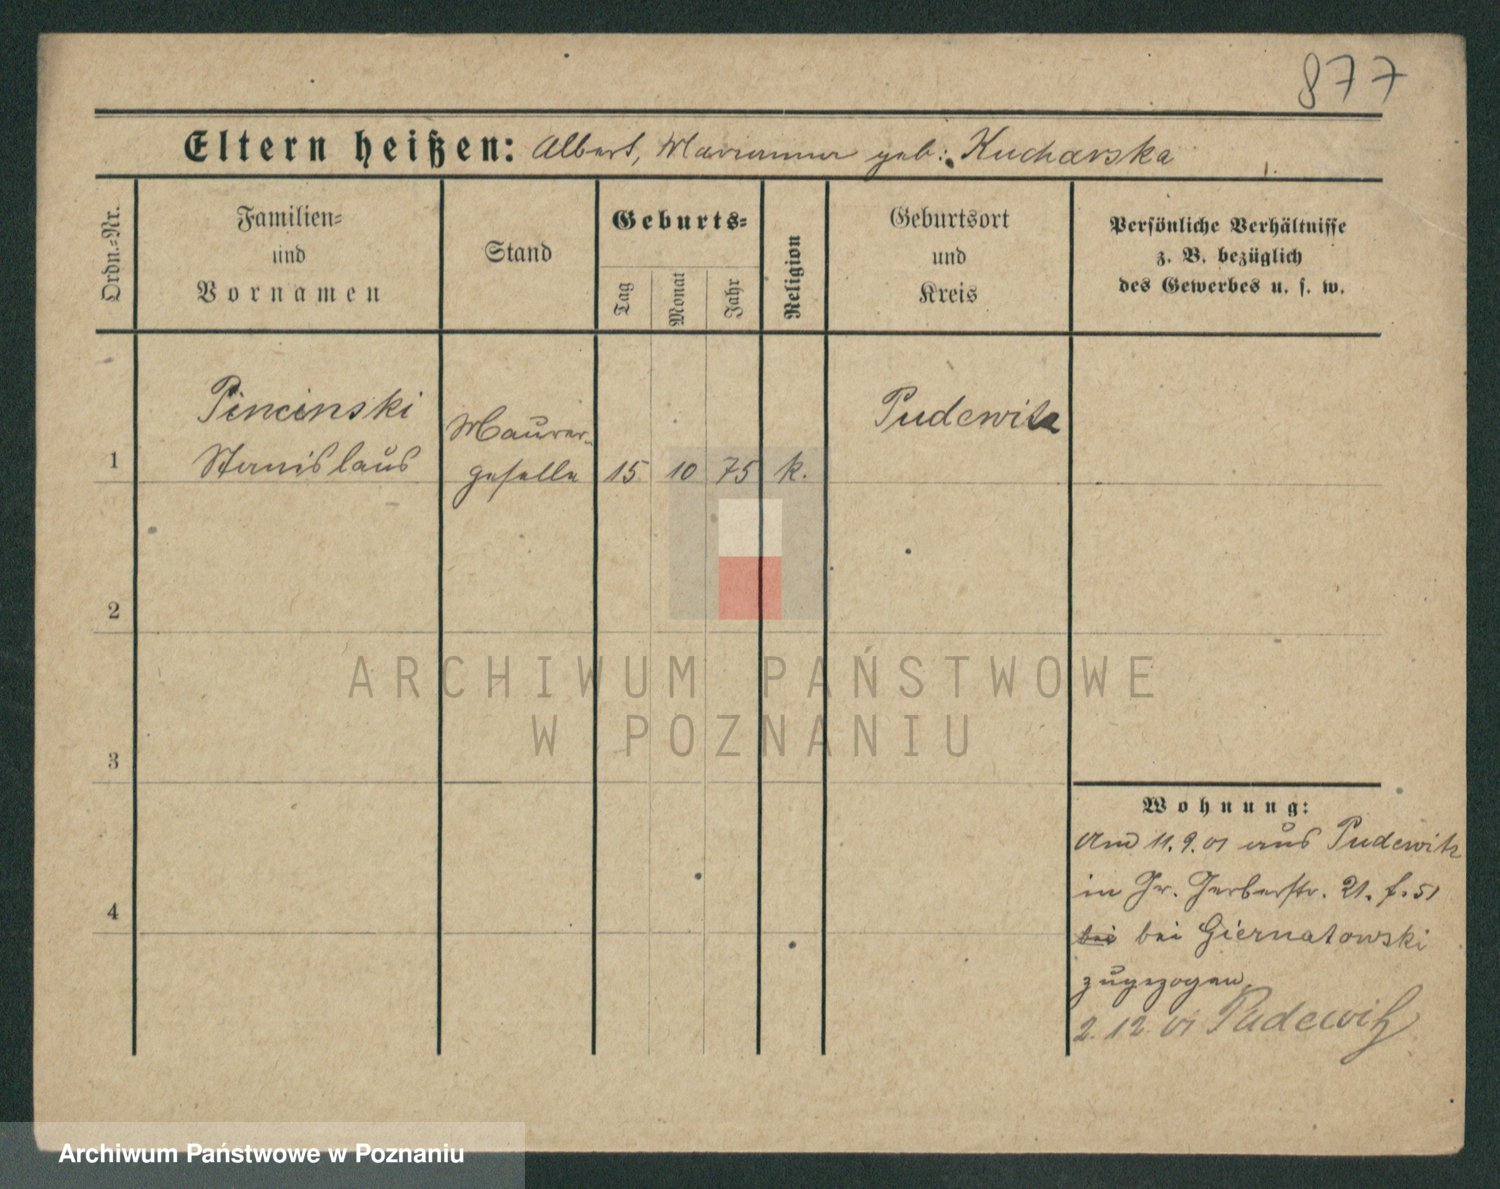 877
Eltern heißen: Albert, Marianna geb: Kucharska
Ordn.-Nr.
Familien-
und
Vornamen
Stand
Geburts-
Tag
Monat
Jahr
Religion
Geburtsort
und
Kreis
Persönliche Verhältnisse
z. B. bezüglich
des Gewerbes u. s. w.
Pincinski
Stanislaus
Maurer-
geselle
1
15
10
75
k.
Pudewitz
2
3
4
ARCHIWUM PAŃSTWOWE
W POZNANIU
Wohnung:
Am 11.9.01 aus Pudewitz
in Gr. Gerberstr. 21. f. 51
bei bei Giernatowski
zugezogen
2.12.01 Pudewitz
Archiwum Państwowe w Poznaniu